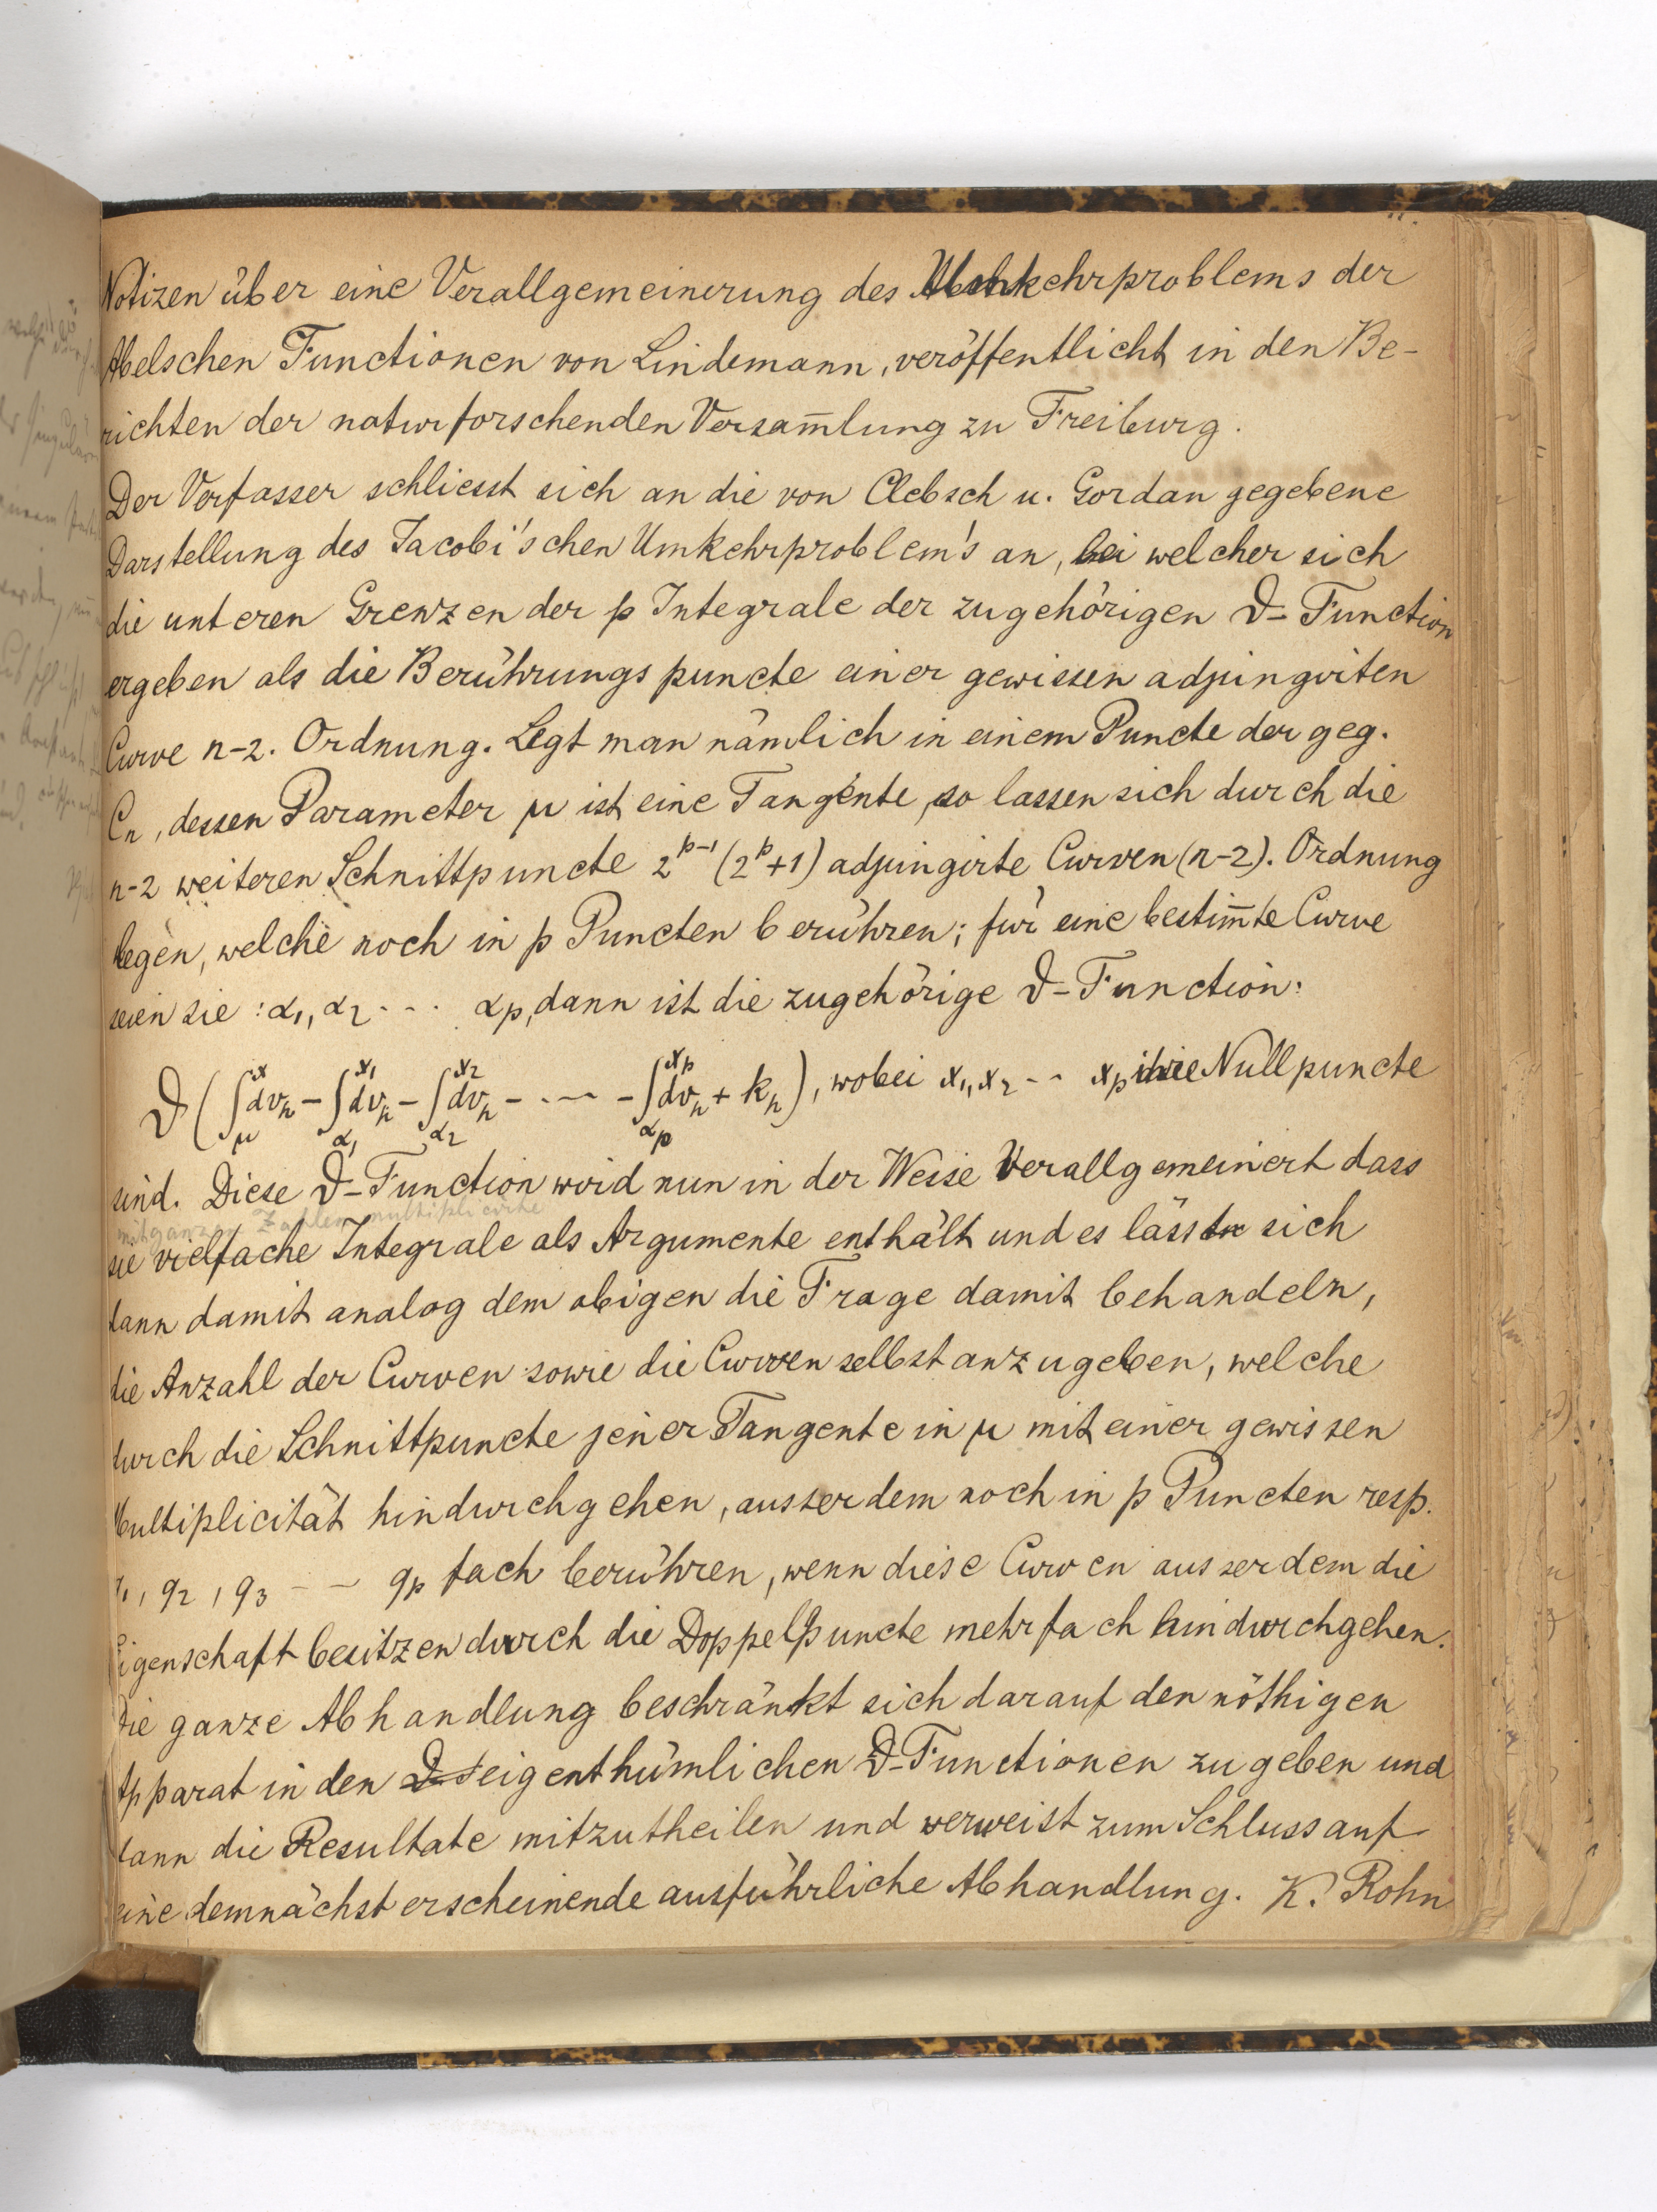 Notizen über eine Verallgemeinerung des Umkehrproblems der
Abelschen Functionen von Lindemann, veröffentlicht in den Be-
richten der naturforschenden Versam̄lung zu Freiburg.
Der Verfasser schliesst sich an die von Clebsch u. Gordan gegebene
Darstellung des Jacobi'schen Umkehrproblem's an, bei welcher sich
die unteren Grenzen der p Integrale der zugehörigen ϑ-Function
ergeben als die Berührungspuncte einer gewissen adjungirten
Curve n-2. Ordnung. Legt man nämlich in einem Puncte der geg.
Cₙ, dessen Parameter μ ist eine Tangente, so lassen sich durch die
n-2 weiteren Schnittpuncte 2^{p-1}(2^p+1) adjungirte Curven (n-2). Ordnung
legen, welche noch in p Puncten berühren; für eine bestim̄te Curve
seien sie: α₁, α₂ - - - αₚ, dann ist die zugehörige ϑ-Function:
ϑ(∫_μ^x dv_h - ∫_{α₁}^{x₁} dv_h - ∫_{α₂}^{x₂} dv_h - - - - - ∫_{αₚ}^{xₚ} dv_h + k_h), wobei x₁, x₂ - - xₚ ihre Nullpuncte
sind. Diese ϑ-Function wird nun in der Weise Verallgemeinert dass
mit ganzen Zahlen multiplicirte
sie vielfache Integrale als Argumente enthält und es lässt sich
dann damit analog dem obigen die Frage damit behandeln,
die Anzahl der Curven sowie die Curven selbst anzugeben, welche
durch die Schnittpuncte jener Tangente in μ mit einer gewissen
Multiplicität hindurchgehen, ausserdem noch in p Puncten resp.
q₁, q₂, q₃ - - qₚ fach berühren, wenn diese Curven ausserdem die
Eigenschaft besitzen durch die Doppelpuncte mehrfach hindurchgehen.
Die ganze Abhandlung beschränkt sich darauf den nöthigen
Apparat in den eigenthümlichen ϑ-Functionen zu geben und
dann die Resultate mitzutheilen und verweist zum Schluss auf
eine demnächst erscheinende ausführliche Abhandlung. K. Rohn